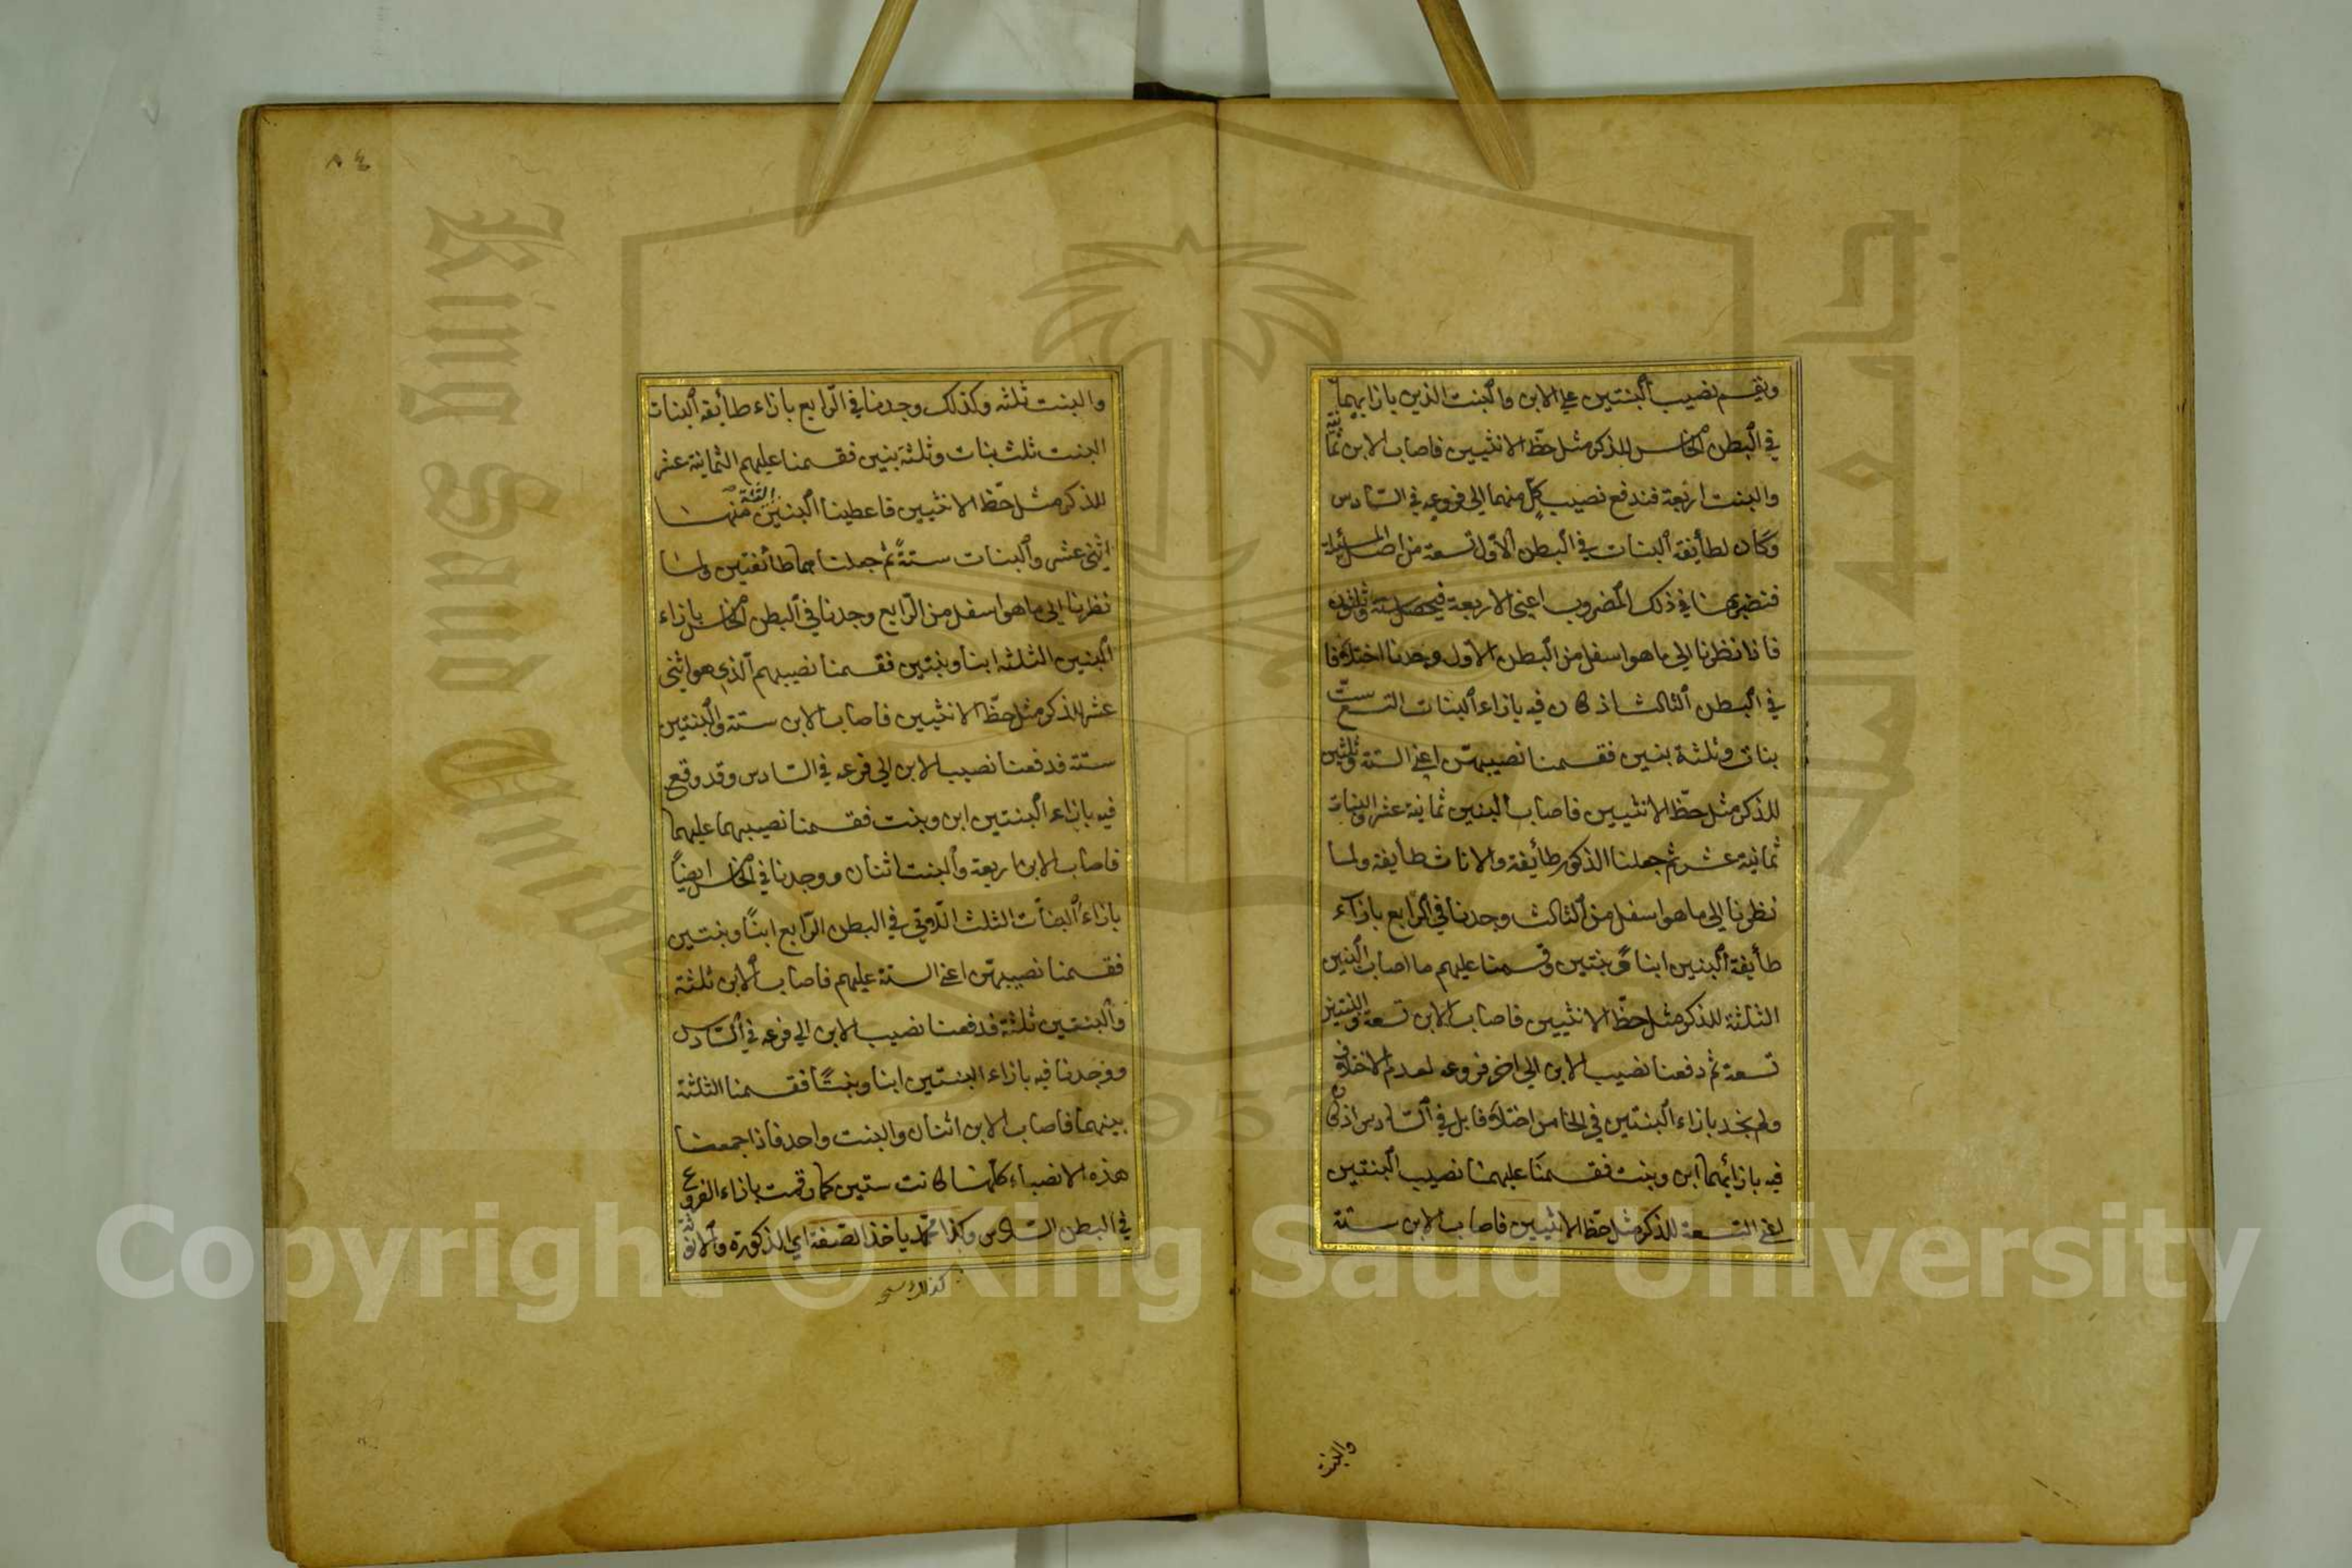 ونقسم نصيب البنتين على الابن والبنت الذين بازايهما
في البطن الخامس للذكر مثل حظ الانثيين فاصاب الابن ثمانية
والبنت اربعة فندفع نصيب كل منهما الى فروعه في السادس
وكان لطائفة البنات في البطن الاول تسعة من اصل المسئلة
فنضربها في ذلك المضروب اعني الاربعة فيحصل ستة وثلثون
فاذا نظرنا الى ما هو اسفل من البطن الاول وجدنا اختلافا
في البطن الثالث اذ كان فيه بازاء البنات التسع ست
بنات وثلثة بنين فقسمنا نصيبهن اعني الستة وثلثين
للذكر مثل حظ الانثيين فاصاب البنين ثمانية عشر والبنات
ثمانية عشر ثم جعلنا الذكور طائفة والاناث طايفة ولما
نظرنا الى ما هو اسفل من الثالث وجدنا في الرابع بازاء
طائفة البنين ابنا وبنتين وقسمنا عليهم ما اصاب البنين
الثلثة للذكر مثل حظ الانثيين فاصاب الابن تسعة والبنتين
تسعة ثم دفعنا نصيب الابن الى اخر فروعه لعدم الاختلاف
ولم نجد بازاء البنتين في الخامس اختلافا بل في السادس اذ كان
فيه بازائهما ابن وبنت فقسمنا عليهما نصيب البنتين
اعني التسعة للذكر مثل حظ الانثيين فاصاب الابن ستة
والبنت
والبنت ثلثه وكذلك وجدنا في الرابع بازاء طائفة البنات
البنت ثلث بنات وثلثة بنين فقسمنا عليهم الثمانية عشر
للذكر مثل حظ الانثيين فاعطينا البنين الثلثة منها
اثنى عشر والبنات ستة ثم جعلناهما طائفتين ولما
نظرنا الى ما هو اسفل من الرابع وجدنا في البطن الخامس بازاء
البنين الثلثه ابنا وبنتين فقسمنا نصيبهم الذي هو اثنى
عشر للذكر مثل حظ الانثيين فاصاب الابن ستة والبنتين
ستة فدفعنا نصيب الابن الى فرعه في السادس وقد وقع
فيه بازاء البنتين ابن وبنت فقسمنا نصيبهما عليهما
فاصاب الابن اربعة والبنت اثنان ووجدنا في الخامس ايضاً
بازاء البنات الثلث اللاتي في البطن الرابع ابناً وبنتين
فقسمنا نصيبهن اعني الستة عليهم فاصاب الابن ثلثة
والبنتين ثلثة فدفعنا نصيب الابن الى فرعه في السادس
ووجدنا فيه بازاء البنتين ابنا وبنتاً فقسمنا الثلثة
بينهما فاصاب الابن اثنان والبنت واحد فاذا جمعنا
هذه الانصباء كلها كانت ستين كما رقمت بازاء الفروع
في البطن السادس وكذا محمد ياخذ الصفة اي الذكورة والانوثة
كذلك
٨٤
Copyright © King Saud University
King Saud Unive
1957
جامعة